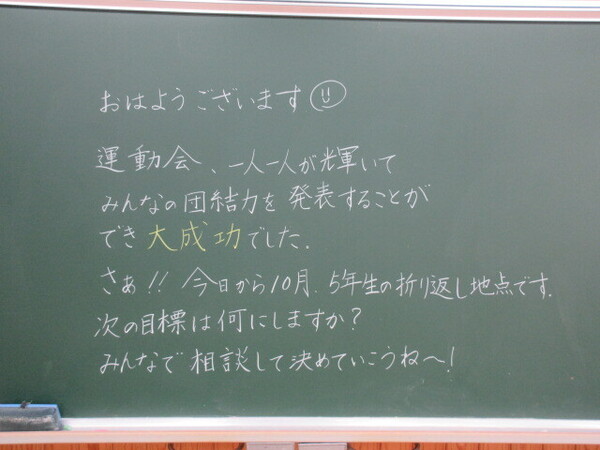 おはようございます
運動会、一人一人が輝いて
みんなの団結力を発表することが
でき大成功でした.
さぁ!! 今日から10月.5年生の折り返し地点です.
次の目標は何にしますか?
みんなで相談して決めていこうね〜!